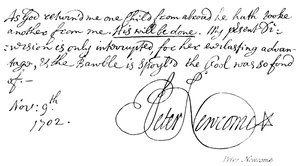 As God return'd me one Child from aboard he hath tooke
another from me. His will be done. My present Di-
version is only interrupted for her everlasting advan-
tage, & the Bauble is spoyl'd the Fool was so fond
of—
Nov: 9th.
1702.
Peter Newcome
Peter Newcome